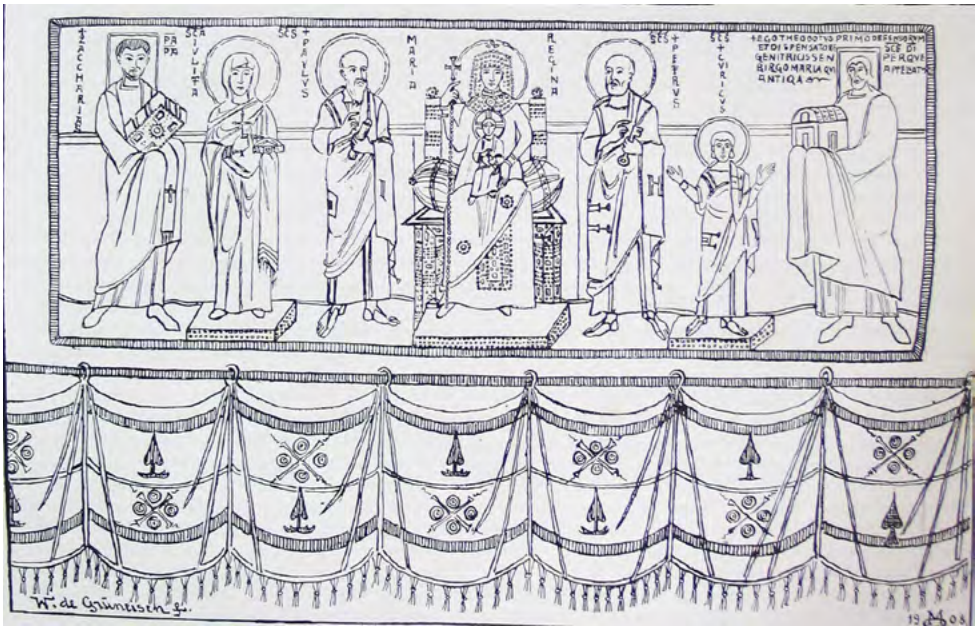 +ZACCHARIAS
PAPA
SCA IVLITA
SCS +PAVLVS
MARIA
REGINA
SCS +PETRVS
SCS +CVIRICVS
+EGO THEODOTVS PRIMO
ET DISPENSATORE SCE DI
GENITRICIS SEN PERQVE
BIRGO MARIA QVI
ANTIQA
W. de Grüneisen f.
1908